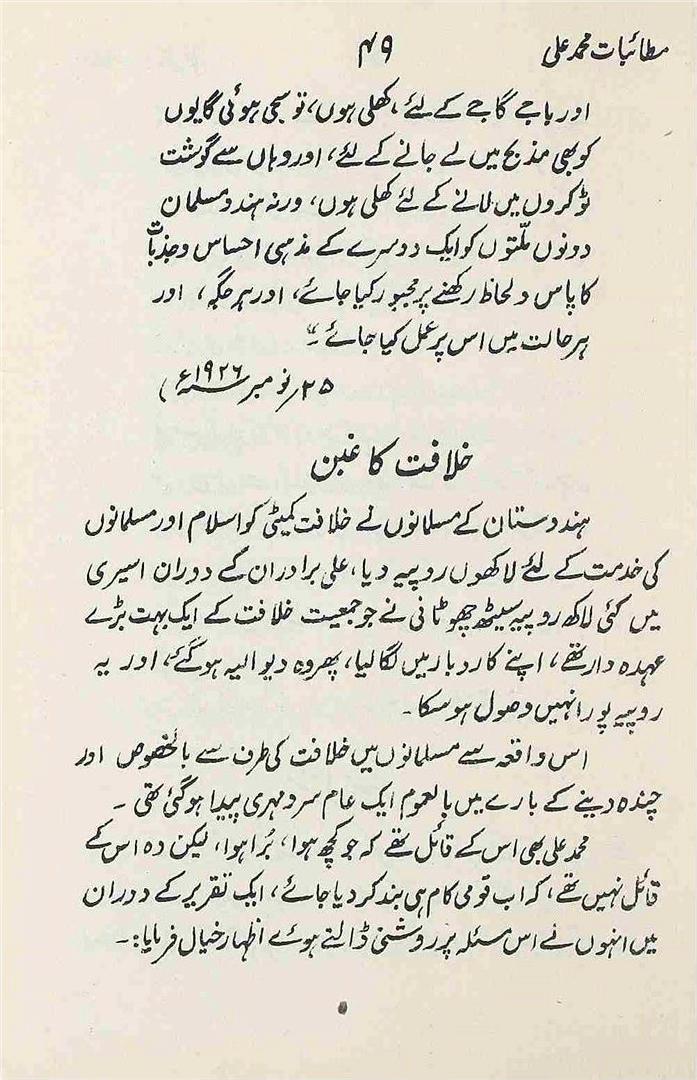 مطائبات محمد علی
۴۹
اور باجے گاجے کے لئے، کھلی ہوں، تو سجی ہوئی گایوں
کو بھی مذبح میں لے جانے کے لئے، اور وہاں سے گوشت
ٹوکروں میں لانے کے لئے کھلی ہوں، ورنہ ہندو مسلمان
دونوں ملّتوں کو ایک دوسرے کے مذہبی احساس و جذبات
کا پاس و لحاظ رکھنے پر مجبور کیا جائے، اور ہر جگہ، اور
ہر حالت میں اس پر عمل کیا جائے۔"
۲۵؍ نومبر ۱۹۲۶ء)
خلافت کا غبن
ہندوستان کے مسلمانوں نے خلافت کمیٹی کو اسلام اور مسلمانوں
کی خدمت کے لئے لاکھوں روپیہ دیا، علی برادران کے دوران اسیری
میں کئی لاکھ روپیہ سیٹھ چھوٹانی نے جو جمعیت خلافت کے ایک بہت بڑے
عہدہ دار تھے، اپنے کاروبار میں لگا لیا، پھر وہ دیوالیہ ہو گئے، اور یہ
روپیہ پورا نہیں وصول ہو سکا۔
اس واقعہ سے مسلمانوں میں خلافت کی طرف سے بالخصوص اور
چندہ دینے کے بارے میں بالعموم ایک عام سرد مہری پیدا ہو گئی تھی۔
محمد علی بھی اس کے قائل تھے کہ جو کچھ ہوا، بُرا ہوا، لیکن وہ اس کے
قائل نہیں تھے، کہ اب قومی کام ہی بند کر دیا جائے، ایک تقریر کے دوران
میں انہوں نے اس مسئلہ پر روشنی ڈالتے ہوئے اظہار خیال فرمایا:۔